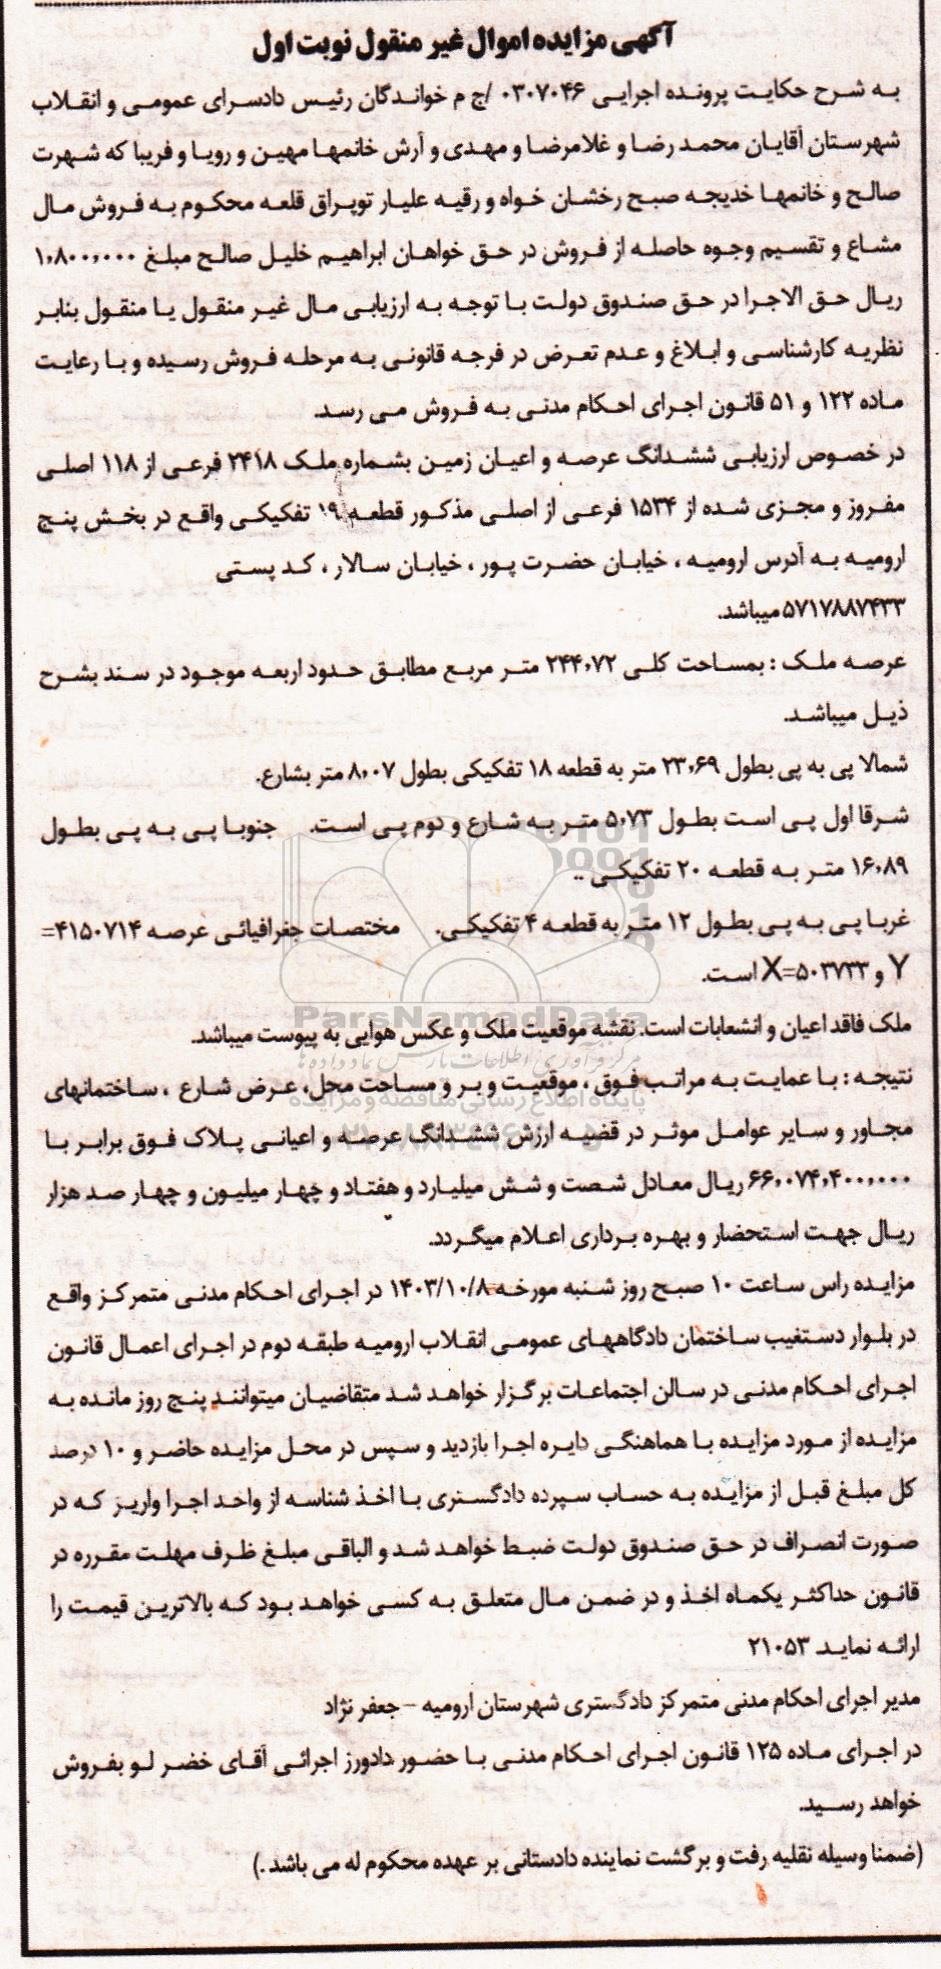 آگهی مزایده اموال غیر منقول نوبت اول
به شرح حکایت پرونده اجرایی ۰۳۰۷۰۴۶ /ج م خواندگان رئیس دادسرای عمومی و انقلاب
شهرستان آقایان محمد رضا و غلامرضا و مهدی و آرش خانمها مهین و رویا و فریبا که شهرت
صالح و خانمها خدیجه صبح رخشان خواه و رقیه علیار توپراق قلعه محکوم به فروش مال
مشاع و تقسیم وجوه حاصله از فروش در حق خواهان ابراهیم خلیل صالح مبلغ ۱,۸۰۰,۰۰۰
ریال حق الاجرا در حق صندوق دولت با توجه به ارزیابی مال غیر منقول یا منقول بنابر
نظریه کارشناسی و ابلاغ و عدم تعرض در فرجه قانونی به مرحله فروش رسیده و با رعایت
ماده ۱۲۲ و ۵۱ قانون اجرای احکام مدنی به فروش می رسد.
در خصوص ارزیابی ششدانگ عرصه و اعیان زمین بشماره ملک ۲۴۱۸ فرعی از ۱۱۸ اصلی
مفروز و مجزی شده از ۱۵۳۴ فرعی از اصلی مذکور قطعه ۱۹ تفکیکی واقع در بخش پنج
ارومیه به آدرس ارومیه ، خیابان حضرت پور ، خیابان سالار ، کد پستی
۵۷۱۷۸۸۷۴۳۳ میباشد.
عرصه ملک : بمساحت کلی ۲۴۴,۷۲ متر مربع مطابق حدود اربعه موجود در سند بشرح
ذیل میباشد.
شمالا پی به پی بطول ۲۳,۶۹ متر به قطعه ۱۸ تفکیکی بطول ۸,۰۷ متر بشارع.
شرقا اول پی است بطول ۵,۷۳ متر به شارع و دوم پی است. جنوبا پی به پی بطول
۱۶,۸۹ متر به قطعه ۲۰ تفکیکی ..
غربا پی به پی بطول ۱۲ متر به قطعه ۴ تفکیکی. مختصات جغرافیائی عرصه ۴۱۵۰۷۱۴=
Y و ۵۰۳۷۳۳=X است.
ParsNamadData
ملک فاقد اعیان و انشعابات است. نقشه موقعیت ملک و عکس هوایی به پیوست میباشد.
مرکز فرآوری اطلاعات پارس نماد داده ها
نتیجه : با عمایت به مراتب فوق ، موقعیت و بر و مساحت محل، عرض شارع ، ساختمانهای
پایگاه اطلاع رسانی مناقصه و مزایده
مجاور و سایر عوامل موثر در قضیه ارزش ششدانگ عرصه و اعیانی پلاک فوق برابر با
۶۶,۰۷۴,۴۰۰,۰۰۰ ریال معادل شصت و شش میلیارد و هفتاد و چهار میلیون و چهار صد هزار
ریال جهت استحضار و بهره برداری اعلام میگردد.
مزایده راس ساعت ۱۰ صبح روز شنبه مورخه ۱۴۰۳/۱۰/۸ در اجرای احکام مدنی متمرکز واقع
در بلوار دستغیب ساختمان دادگاههای عمومی انقلاب ارومیه طبقه دوم در اجرای اعمال قانون
اجرای احکام مدنی در سالن اجتماعات برگزار خواهد شد متقاضیان میتوانند پنج روز مانده به
مزایده از مورد مزایده با هماهنگی دایره اجرا بازدید و سپس در محل مزایده حاضر و ۱۰ درصد
کل مبلغ قبل از مزایده به حساب سپرده دادگستری با اخذ شناسه از واحد اجرا واریز که در
صورت انصراف در حق صندوق دولت ضبط خواهد شد و الباقی مبلغ ظرف مهلت مقرره در
قانون حداکثر یکماه اخذ و در ضمن مال متعلق به کسی خواهد بود که بالاترین قیمت را
ارائه نماید ۲۱۰۵۳
مدیر اجرای احکام مدنی متمرکز دادگستری شهرستان ارومیه - جعفر نژاد
در اجرای ماده ۱۲۵ قانون اجرای احکام مدنی با حضور دادورز اجرائی آقای خضر لو بفروش
خواهد رسید.
(ضمنا وسیله نقلیه رفت و برگشت نماینده دادستانی بر عهده محکوم له می باشد .)